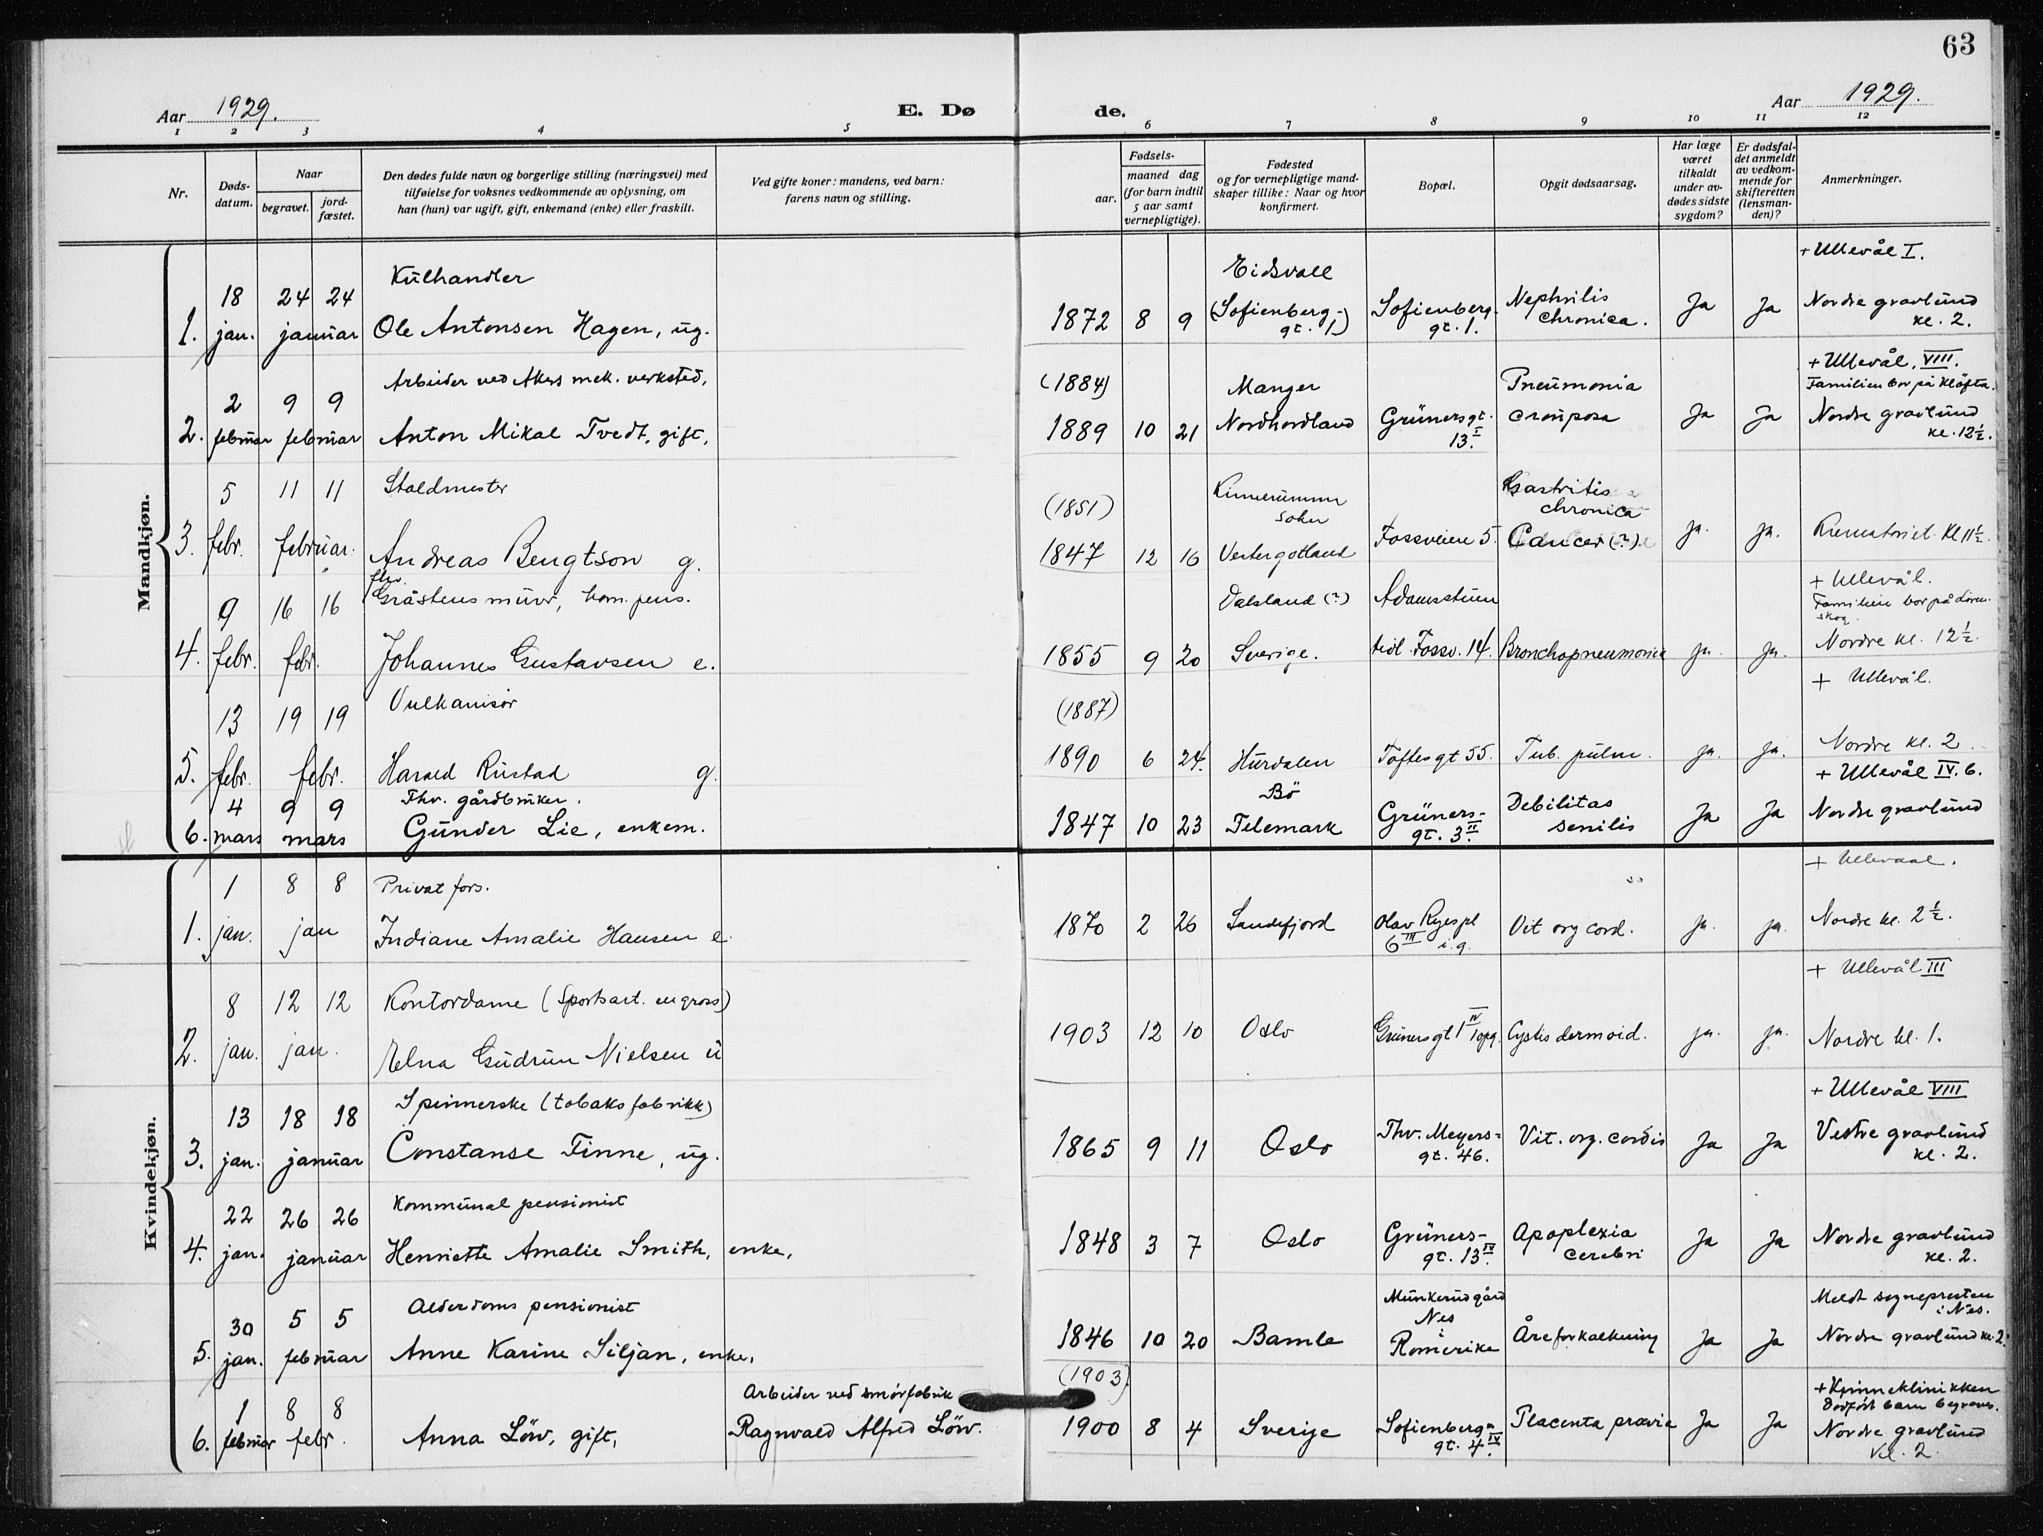 63
Aar 1929.
E. Dø
de.
Aar 1929.
1 2 3 4 5 6 7 8 9 10 11 12
Nr.
Døds-
datum.
Naar
begravet.
jord-
fæstet.
Den dødes fulde navn og borgerlige stilling (næringsvei) med
tilføielse for voksnes vedkommende av oplysning, om
han (hun) var ugift, gift, enkemand (enke) eller fraskilt.
Ved gifte koner: mandens, ved barn:
farens navn og stilling.
Fødsels-
aar.
maaned dag
(for barn indtil
5 aar samt
vernepligtige).
Fødested
og for vernepligtige mand-
skaper tillike: Naar og hvor
konfirmert.
Bopæl.
Opgit dødsaarsag.
Har læge
været
tilkaldt
under av-
dødes sidste
sygdom?
Er dødsfal-
det anmeldt
av vedkom-
mende for
skifteretten
(lensman-
den)?
Anmerkninger.
Mandkjøn.
Kulhandler Eidsvall + Ullevål I.
18 24 24 (Sofienberg- Sofienberg- Nephritis Nordre gravlund
1. jan. januar Ole Antonsen Hagen, ug. 1872 8 9 gt. 1) gt. 1. chronica. Ja Ja kl. 2.
Arbeider ved Akers mek. verksted, (1884) Manger Pneumonia + Ullevål, VIII.
Familien bor på Kløfta.
2 9 9
2. februar februar Anton Mikal Tvedt, gift, 1889 10 21 Nordhordland Grünersgt. crouposa Ja Ja Nordre gravlund
13 I. kl. 12½.
5 11 11 Staldmester (1851) Gastritis
soken chronica
3. febr. februar. Andreas Bengtson g. 1847 12 16 Vestergotland Fossveien 5. Cancer (?) ja. ja. Krematoriet kl 11½.
fhv.
9 16 16 Gråstensmurer, kom. pens. Dalsland (?) Adamstuen + Ullevål.
Familien bor på Lören-
skog.
4. febr. febr. Johannes Gustavsen e. 1855 9 20 Sverige. tidl. Fossv. 14. Bronchopneumonia ja. ja. Nordre kl. 12½.
13 19 19 Vulkanisør (1887) + Ullevål.
5. febr. febr. Harald Rustad g. 1890 6 24. Hurdalen Toftesgt 55. Tub. pulm. ja. ja. Nordre kl. 2.
4 9 9 Fhv. gårdbruker. Bö Debilitas + Ullevål IV. 6.
6. mars mars Gunder Lie, enkem. 1847 10 23 Telemark Grüners- senilis Ja Ja Nordre gravlund
gt. 3 II.
Kvindekjøn.
1 8 8 Privat fors. + Ullevaal.
1. jan. jan Indiane Amalie Hansen e. 1870 2 26 Sandefjord Olav Ryespl Vit org cord. ja. ja. Nordre kl. 2½.
6 III i. g.
8 12 12 Kontordame (Sportsart. engros) + Ullevål III
2. jan. jan. Elna Gudrun Nielsen u 1903 12 10 Oslo Grünersgt 1 IV 1 opg. Cystis dermoid. ja. ja. Nordre kl. 1.
13 18 18 Spinnerske (tobaksfabrikk) + Ullevål VIII
3. jan. januar Constanse Finne, ug. 1865 9 11 Oslo Thv. Meyers- Vit. org. cordis Ja Ja Vestre gravlund
gt. 46. kl. 2.
22 26 26 Kommunal pensionist
4. jan. januar Henriette Amalie Smith, enke, 1848 3 7 Oslo Grüners- Apoplexia Ja Ja Nordre gravlund
gt. 13 IV. cerebri kl. 2.
30 5 5 Alderdoms pensionist Munkerudgård Meldt sogneprsten
Nes i Nes.
5. jan. februar Anne Karine Siljan, enke, 1846 10 20 Bamle i Romerike Åreforkalkning Ja Ja Nordre gravlund kl. 2.
1 8 8 Arbeider ved smörfabrik (1903) + Kvinneklinikken
Dødfødt barn begraves.
6. februar febr. Anna Löw, gift, Ragnvald Alfred Löw. 1900 8 4 Sverige Sofienberg- Placenta prævia Ja Ja Nordre gravlund
gt. 4 IV. kl. 2.